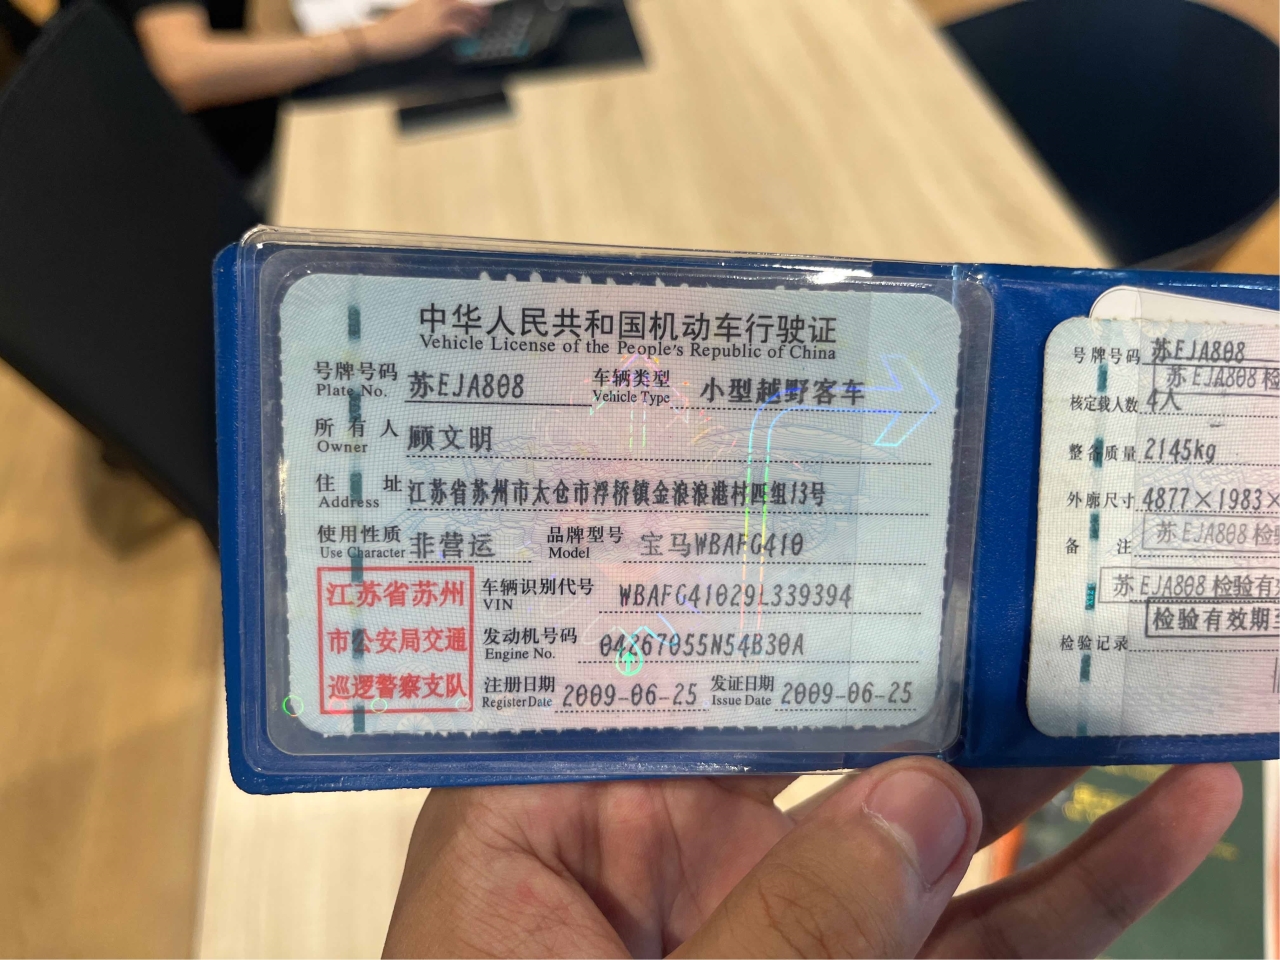 中华人民共和国机动车行驶证
Vehicle License of the People's Republic of China
号牌号码 苏EJA808 车辆类型 小型越野客车
Plate No. Vehicle Type
所有人 顾文明
Owner
住址 江苏省苏州市太仓市浮桥镇金浪浪港村四组13号
Address
使用性质 非营运 品牌型号 宝马WBAFG410
Use Character Model
江苏省苏州
市公安局交通
巡逻警察支队
车辆识别代号 WBAFG41029L339394
VIN
发动机号码 04867055N54B30A
Engine No.
注册日期 2009-06-25 发证日期 2009-06-25
Register Date Issue Date
号牌号码 苏EJA808
苏EJA808检
核定载人数 4人
整备质量 2145kg
外廓尺寸 4877×1983×
备注 苏EJA808检验
苏EJA808检验有
检验有效期
检验记录